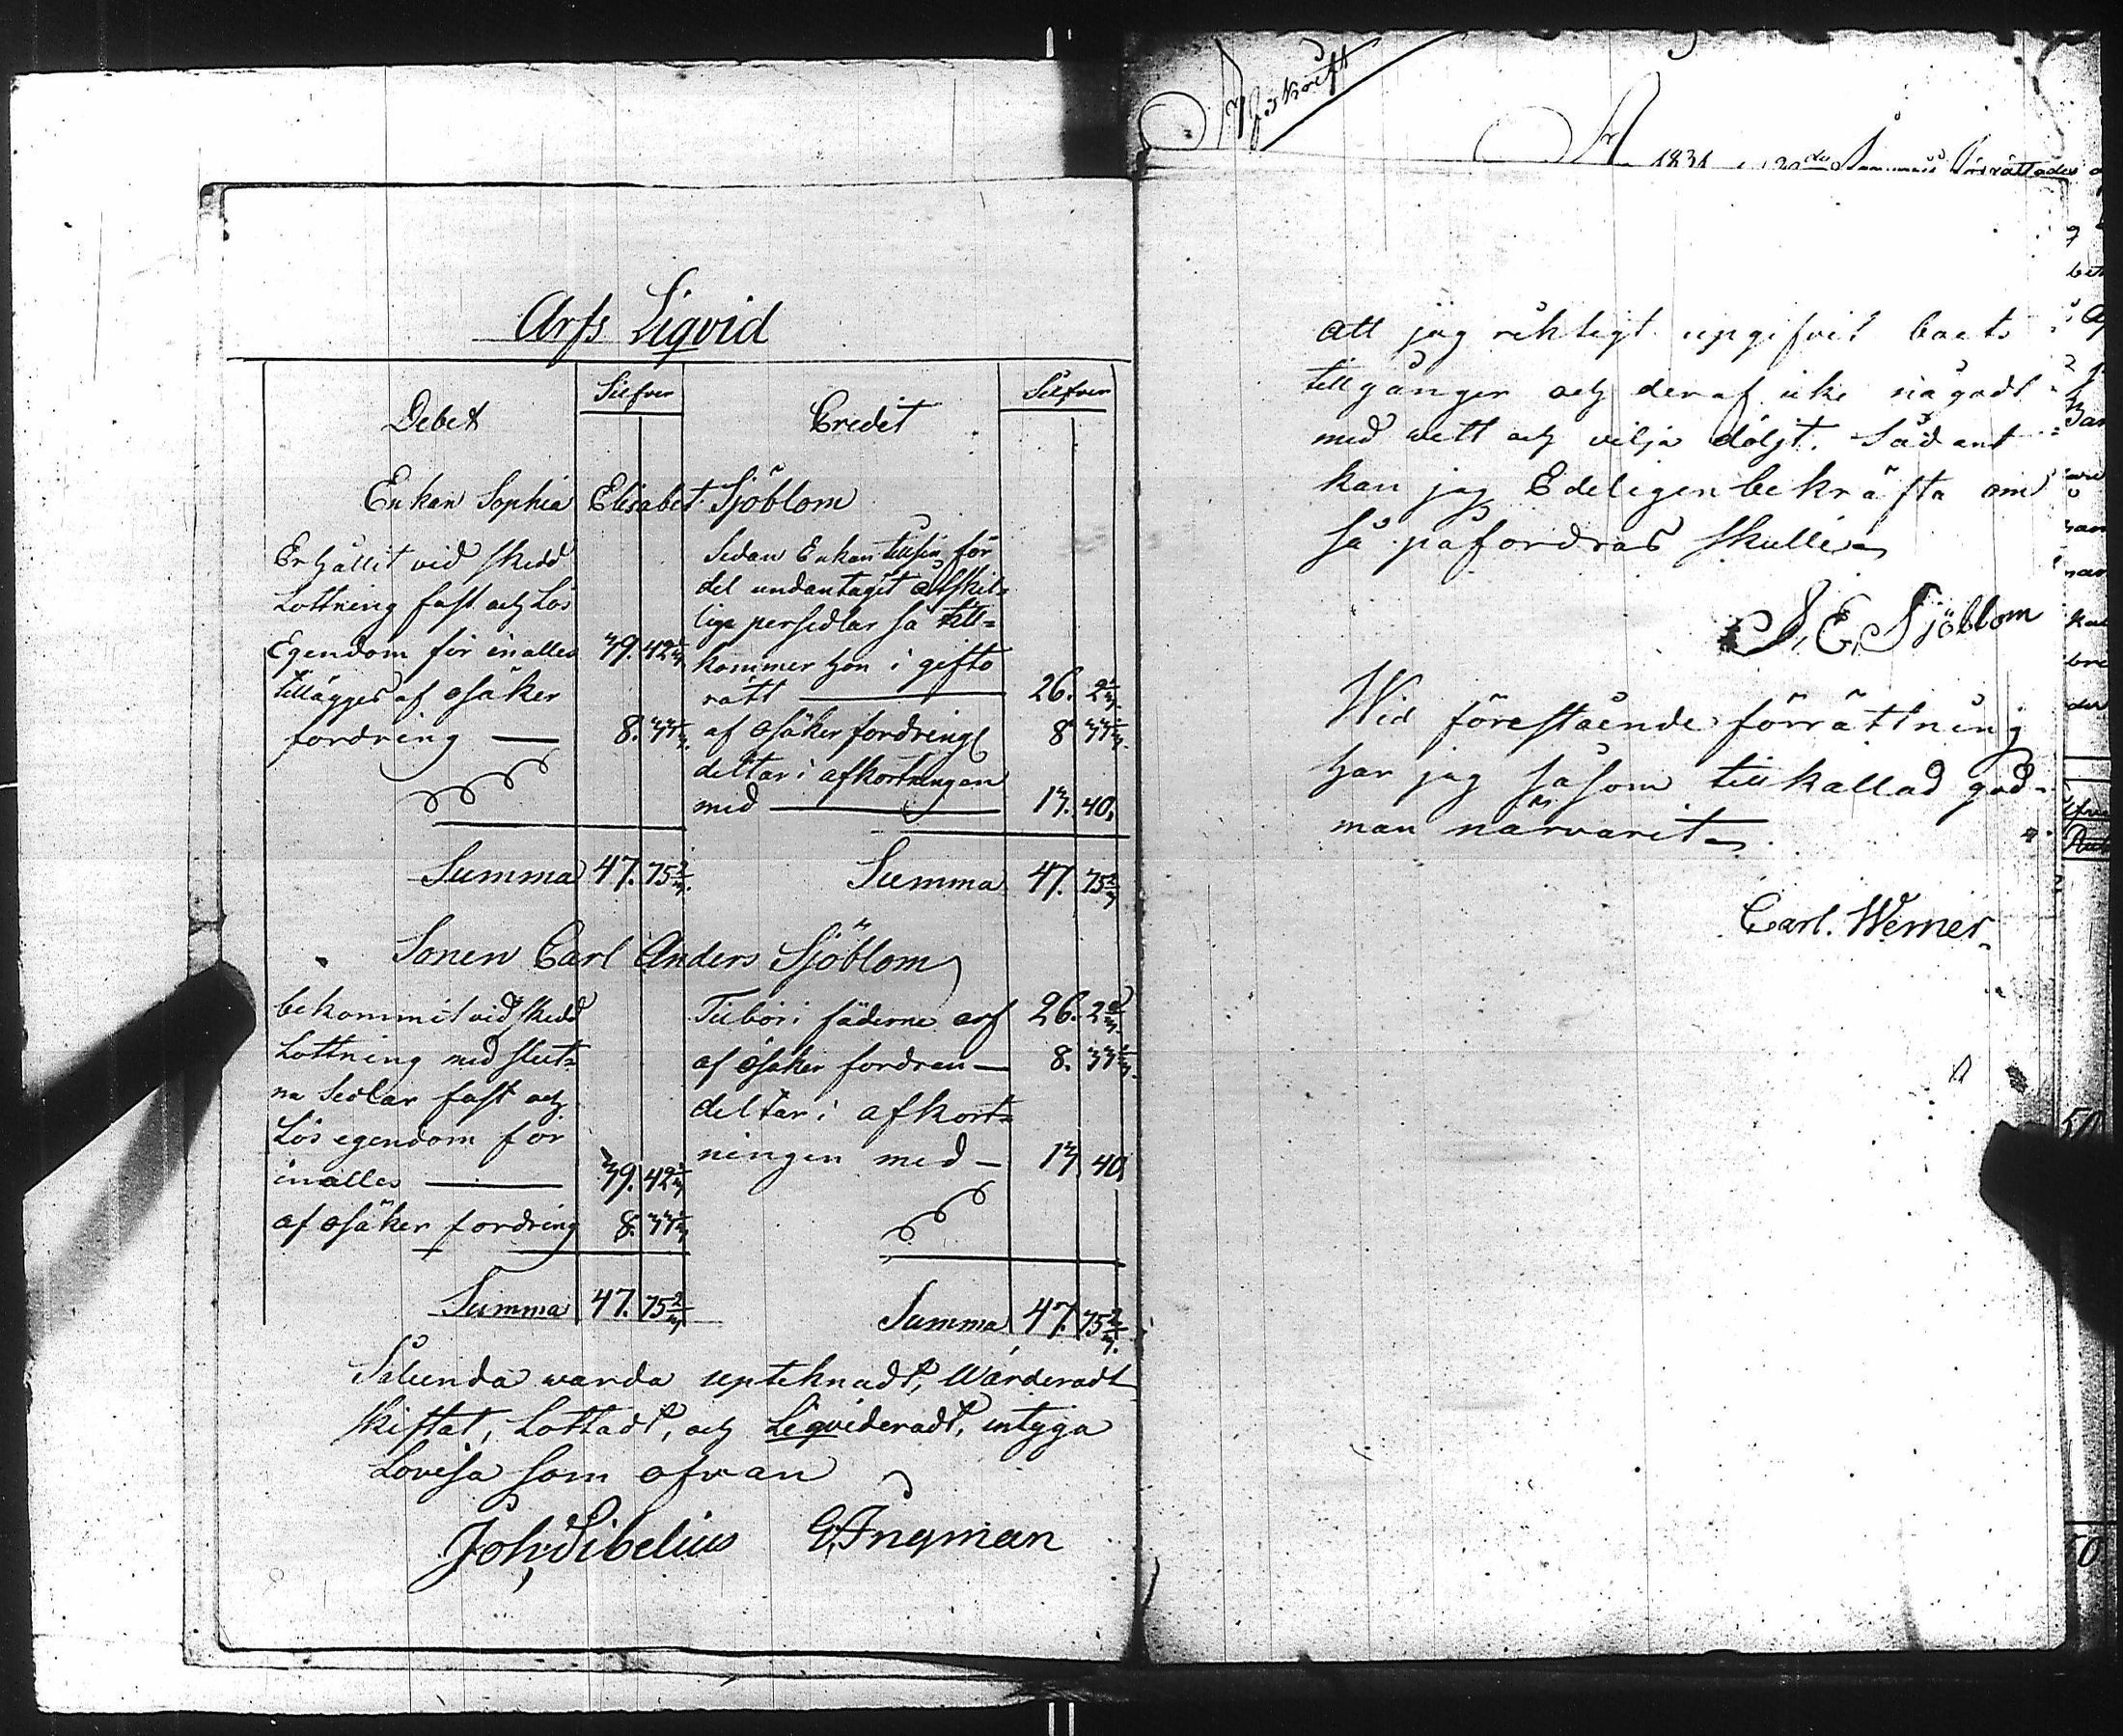 Arfs Liqvid
Debet Silfver Credit Silfver
Enkan Sophia Elisabet Sjöblom
Erhållit vid skedd
Lottning fast och Lös
Egendom för inalles 39. 42 1/3
tillägges af osäker
fordring — 8. 33 1/3
Summa 47. 75 2/3
Sedan Enkan till sin för
del undantagit åtskil=
lige persedlar så till=
kommer hon i gifto
rätt — 26. 2 1/3
af osäker fordring 8 33 1/3
deltar i afkortningen
med — 13. 40.
Summa 47. 75 2/3
Sonen Carl Anders Sjöblom
bekommit vid skedd
Lottning med slut=
na Sedlar fast och
Lös egendom för
inalles — 39. 42 1/3
af osäker fordring 8. 33 1/3
Summa 47. 75 2/3
Tillhör i fäderne arf 26. 2 1/3
af osäker fordran — 8. 33 1/3
deltar i afkort=
ningen med — 13 40
Summa 47. 75 2/3
Sålunda warda upteknadt, Wärderadt
skiftat, Lottadt, och Liqvideradt, intyga
Lovisa som ofvan
Joh: Sibelius G. Ingman
Afskrift
År 1831 Förrättades
att jag riktigt upgifvit boets
tillgångar och deraf icke någodt
med wett och vilja döljt. Sådant
kan jag Edeligen bekräfta om
så påfordras skulle
S. E. Sjöblom
Wid förestående förrättning
har jag såsom tillkallad god=
man närvarit
Carl. Werner